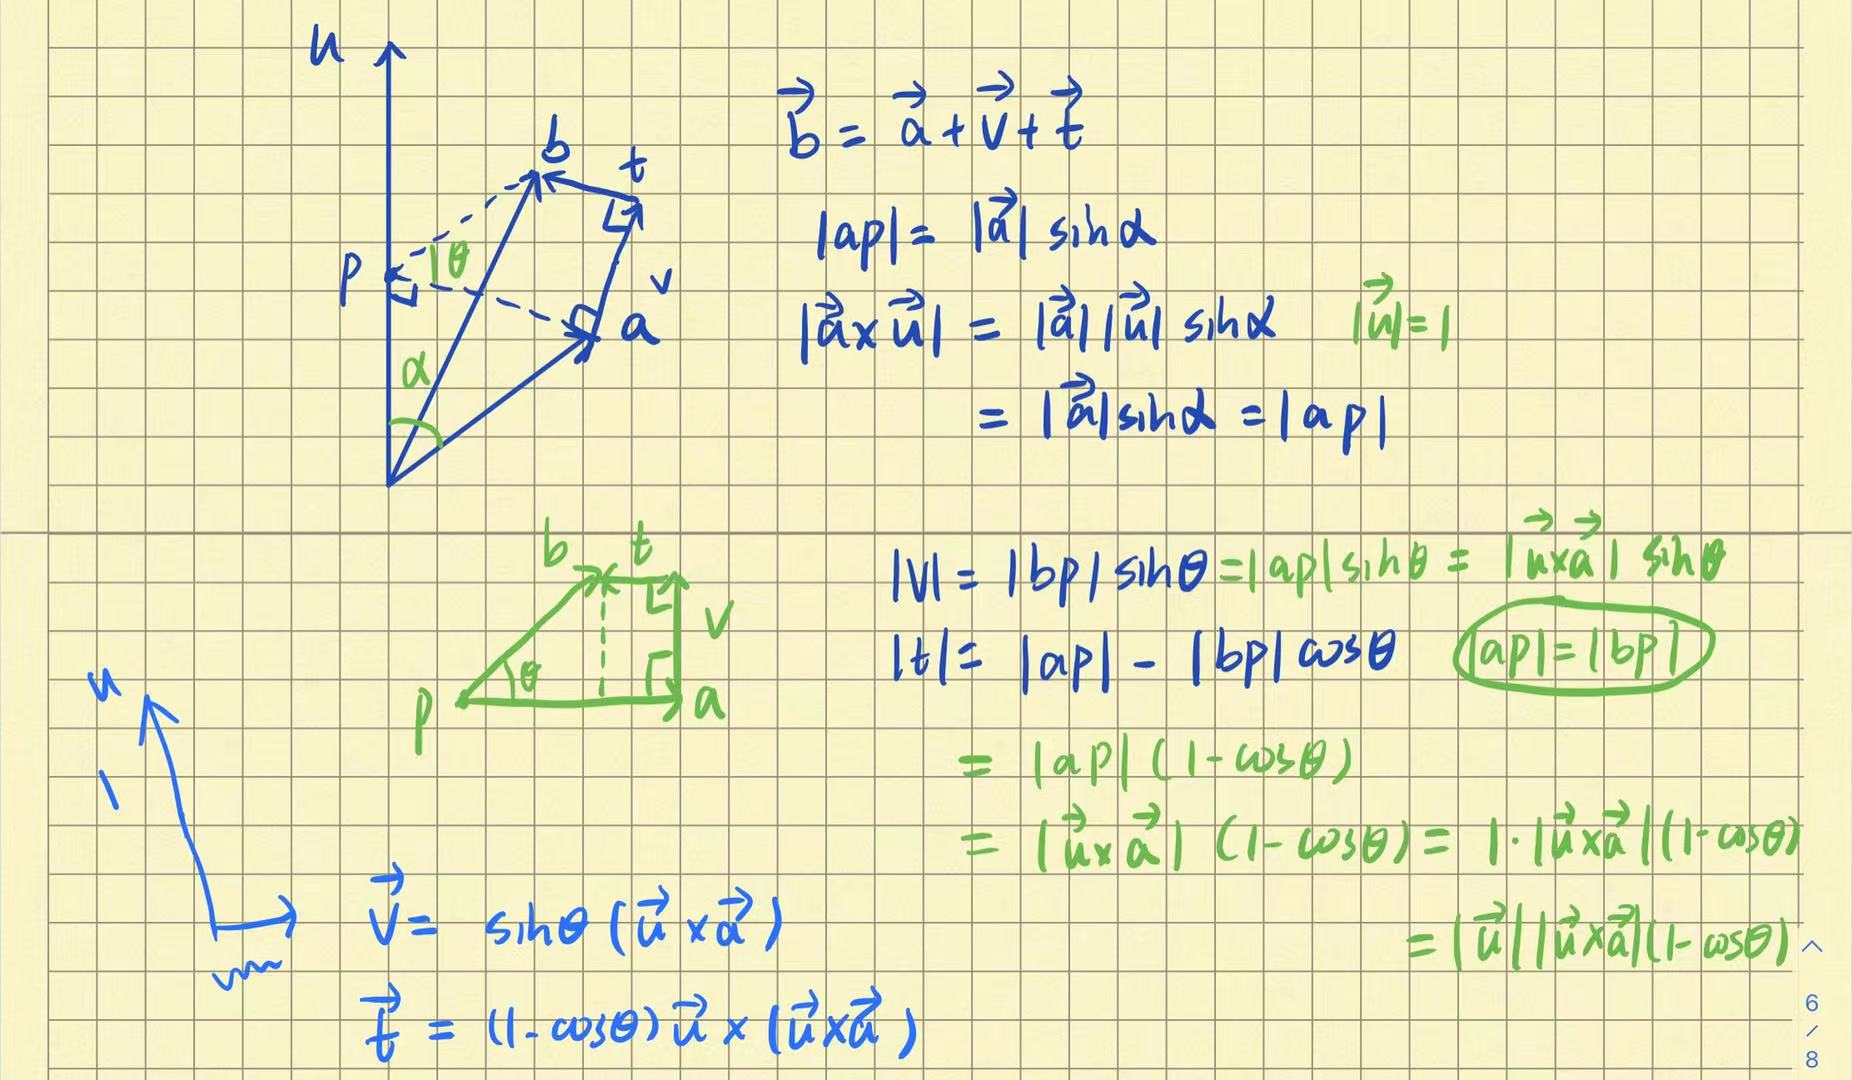 u
b
t
p
θ
v
a
α
b⃗ = a⃗ + v⃗ + t⃗
|ap| = |a⃗| sinα
|a⃗ × u⃗| = |a⃗| |u⃗| sinα |u⃗| = 1
= |a⃗| sinα = |ap|
b t
v
θ
p a
|v| = |bp| sinθ = |ap| sinθ = |u⃗×a⃗| sinθ
|t| = |ap| - |bp| cosθ |ap| = |bp|
= |ap| (1 - cosθ)
= |u⃗×a⃗| (1 - cosθ) = 1·|u⃗×a⃗|(1-cosθ)
= |u⃗||u⃗×a⃗|(1-cosθ)
u
1
v⃗ = sinθ (u⃗ × a⃗)
t⃗ = (1-cosθ) u⃗ × (u⃗×a⃗)
6
/
8